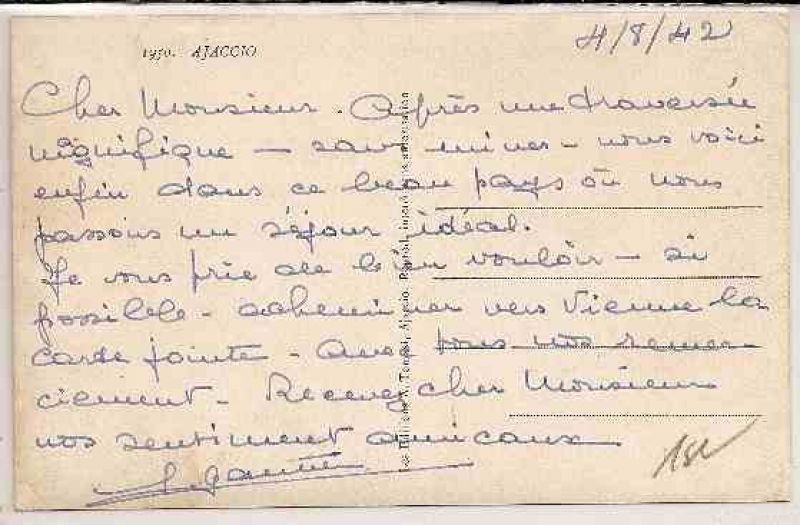 4/8/42
1950. AJACCIO
Cher Monsieur. Après une traversée
magnifique – sans mines – nous voici
enfin dans ce beau pays où nous
passons un séjour idéal.
Je vous prie de bien vouloir – si
possible – acheminer vers Vienne la
carte jointe – avec tous nos remer-
ciement – Recevez cher Monsieur
nos sentiment amicaux
Les Editions A. Tomasi, Ajaccio.